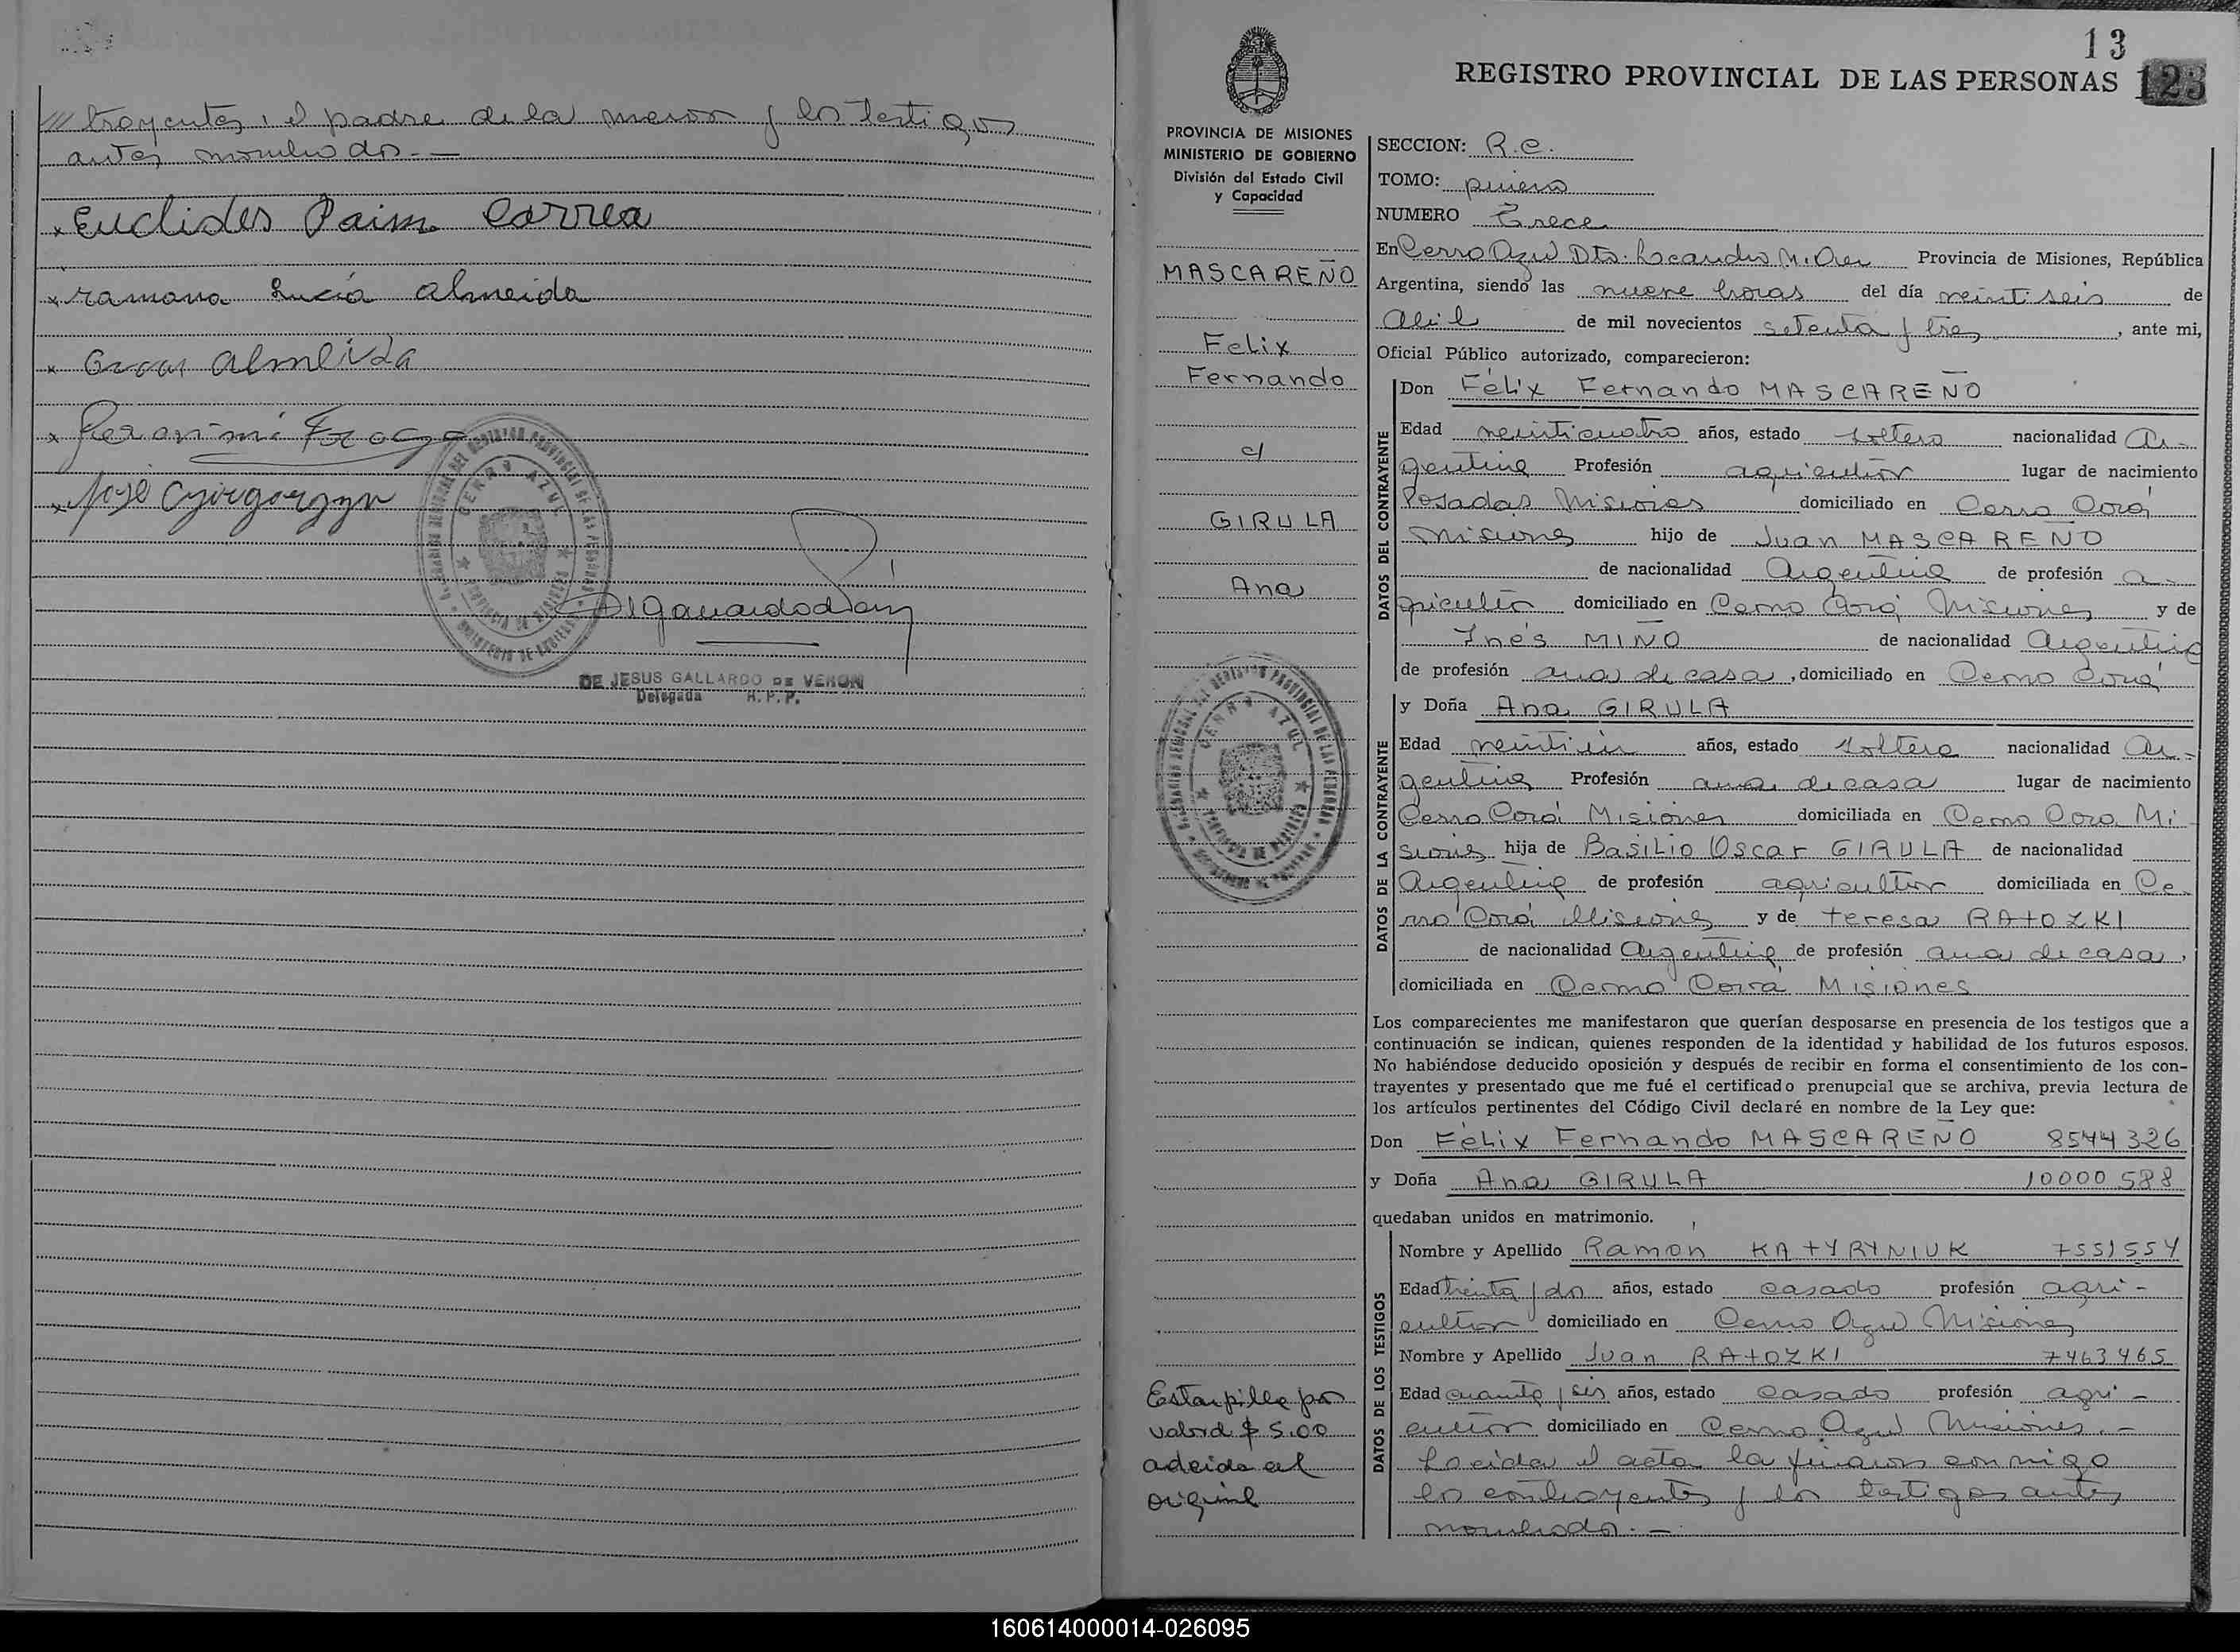 /// trayentes, el padre de la menor y los testigos
antes nombrados.—
x Euclides Paim Correa
x ramona Lucía almeida
x almeida
x
x José
CERRO AZUL
DE JESUS GALLARDO DE VERON
Delegada R. P. P.
13
REGISTRO PROVINCIAL DE LAS PERSONAS 123
PROVINCIA DE MISIONES
MINISTERIO DE GOBIERNO
División del Estado Civil
y Capacidad
MASCAREÑO
Felix
Fernando
c/
GIRULA
Ana
CERRO AZUL
Estampilla por
valor d $ 5.00
adeida al
original
SECCION: R.C.
TOMO: primero
NUMERO Trece
En Cerro Azul Dto. Leandro N. Alem Provincia de Misiones, República
Argentina, siendo las nueve horas del día veintiseis de
Abril de mil novecientos setenta y tres, ante mi,
Oficial Público autorizado, comparecieron:
DATOS DEL CONTRAYENTE
Don Félix Fernando MASCAREÑO
Edad veinticuatro años, estado soltero nacionalidad Ar-
gentina Profesión agricultor lugar de nacimiento
Posadas Misiones domiciliado en Cerro Corá
Misiones hijo de Juan MASCAREÑO
de nacionalidad Argentina de profesión a-
gricultor domiciliado en Cerro Corá Misiones y de
Inés MIÑO de nacionalidad Argentina
de profesión ama de casa, domiciliado en Cerro Corá
DATOS DE LA CONTRAYENTE
y Doña Ana GIRULA
Edad veintiún años, estado soltera nacionalidad Ar-
gentina Profesión ama de casa lugar de nacimiento
Cerro Corá Misiones domiciliada en Cerro Cora Mi
siones hija de Basilio Oscar GIRULA de nacionalidad
Argentina de profesión agricultor domiciliada en Ce-
rro Corá Misiones y de teresa RATOZKI
de nacionalidad Argentina de profesión ama de casa,
domiciliada en Cerro Corá Misiones
Los comparecientes me manifestaron que querían desposarse en presencia de los testigos que a
continuación se indican, quienes responden de la identidad y habilidad de los futuros esposos.
No habiéndose deducido oposición y después de recibir en forma el consentimiento de los con-
trayentes y presentado que me fué el certificado prenupcial que se archiva, previa lectura de
los artículos pertinentes del Código Civil declaré en nombre de la Ley que:
Don Félix Fernando MASCAREÑO 8544326
y Doña Ana GIRULA 10000588
quedaban unidos en matrimonio.
DATOS DE LOS TESTIGOS
Nombre y Apellido Ramon KATYRYNIUK 7551554
Edad treinta y dos años, estado casado profesión agri-
cultor domiciliado en Cerro Azul Misiones
Nombre y Apellido Juan RATOZKI 7463465
Edad cuarenta y seis años, estado casado profesión agri-
cultor domiciliado en Cerro Azul Misiones.-
Leida el acta la firman conmigo
los contrayentes y los testigos antes
nombrados.—
160614000014-026095